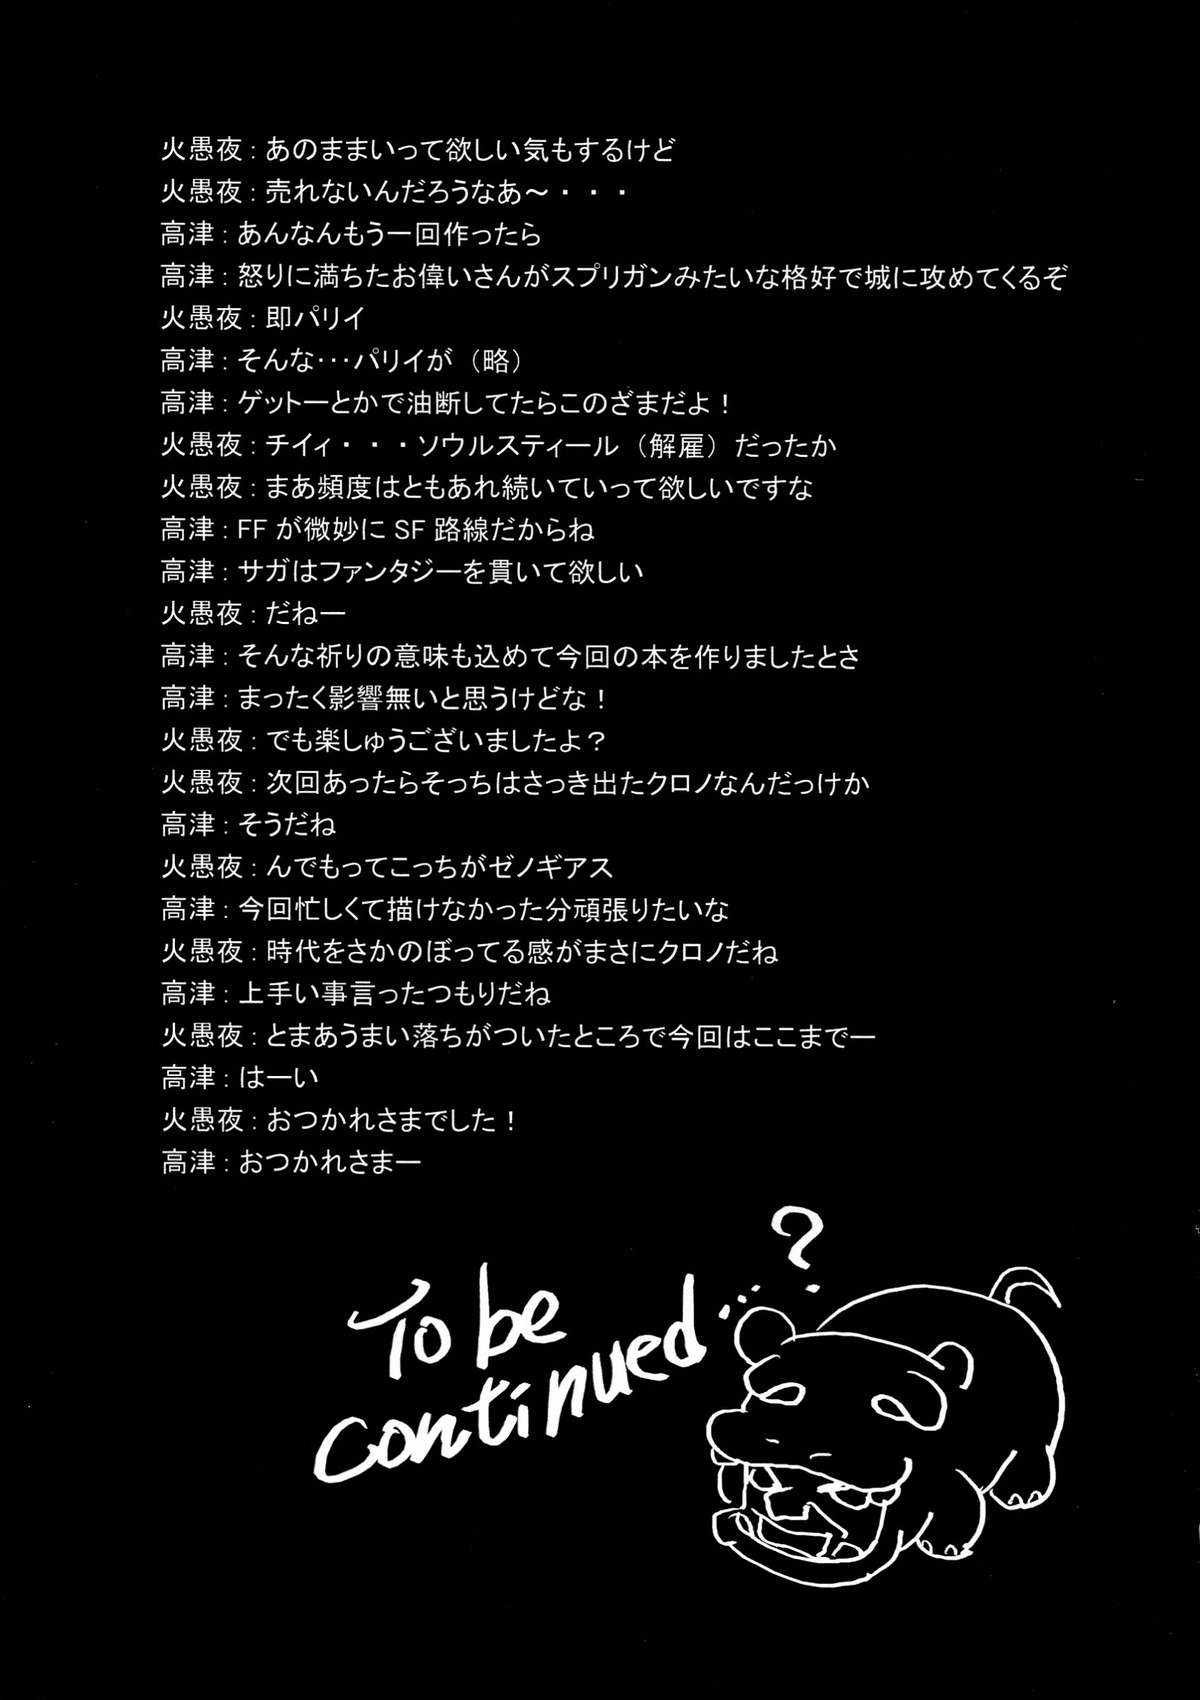 火愚夜：あのままいって欲しい気もするけど
火愚夜：売れないんだろうなあ～・・・
高津：あんなんもう一回作ったら
高津：怒りに満ちたお偉いさんがスプリガンみたいな格好で城に攻めてくるぞ
火愚夜：即パリイ
高津：そんな･･･パリイが（略）
高津：ゲットーとかで油断してたらこのざまだよ！
火愚夜：チイィ・・・ソウルスティール（解雇）だったか
火愚夜：まあ頻度はともあれ続いていって欲しいですな
高津：FF が微妙に SF 路線だからね
高津：サガはファンタジーを貫いて欲しい
火愚夜：だねー
高津：そんな祈りの意味も込めて今回の本を作りましたとさ
高津：まったく影響無いと思うけどな！
火愚夜：でも楽しゅうございましたよ？
火愚夜：次回あったらそっちはさっき出たクロノなんだっけか
高津：そうだね
火愚夜：んでもってこっちがゼノギアス
高津：今回忙しくて描けなかった分頑張りたいな
火愚夜：時代をさかのぼってる感がまさにクロノだね
高津：上手い事言ったつもりだね
火愚夜：とまあうまい落ちがついたところで今回はここまでー
高津：はーい
火愚夜：おつかれさまでした！
高津：おつかれさまー
To be
continued...?